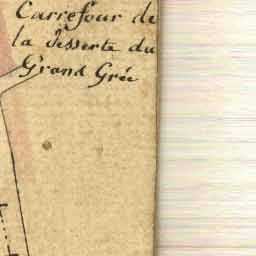 Carrefour de
la Desserte du
Grand Grée